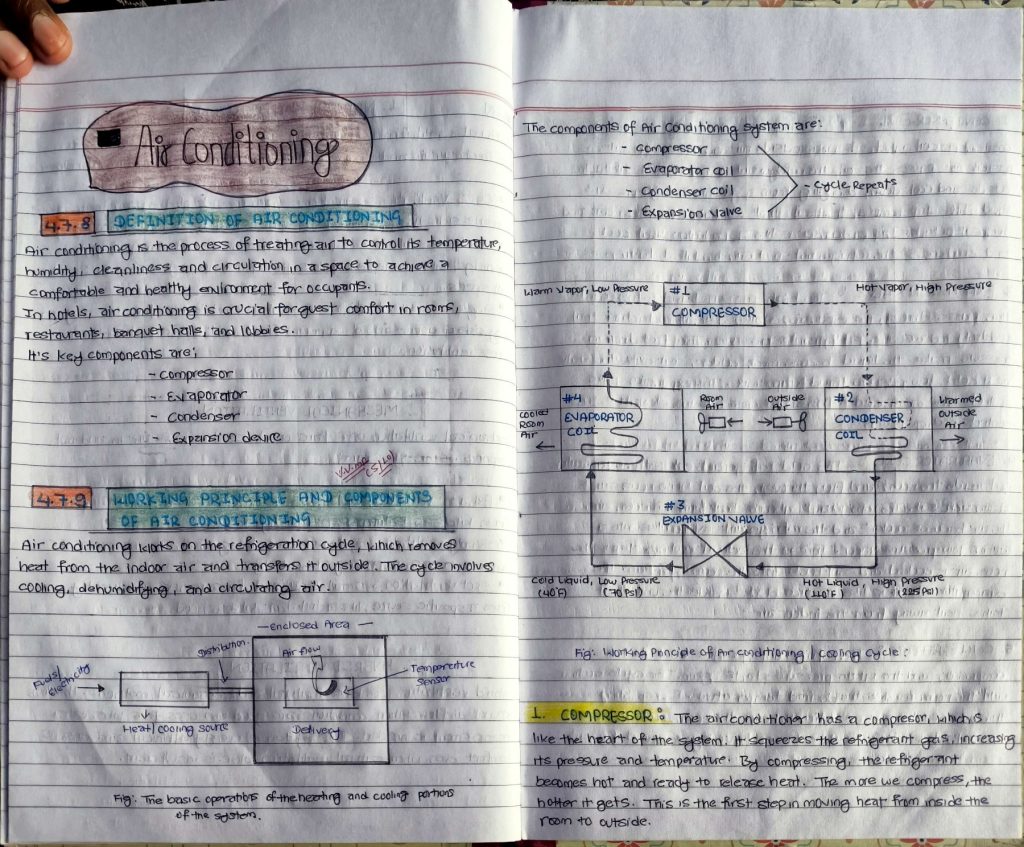 Air Conditioning
4.7.8 DEFINITION OF AIR CONDITIONING
Air conditioning is the process of treating air to control its temperature,
humidity, cleanliness and circulation in a space to achieve a
comfortable and healthy environment for occupants.
In hotels, air conditioning is crucial for guest comfort in rooms,
restaurants, banquet halls, and lobbies.
It's key components are:
- Compressor
- Evaporator
- Condenser
- Expansion device
4.7.9 WORKING PRINCIPLE AND COMPONENTS
OF AIR CONDITIONING
Air conditioning works on the refrigeration cycle, which removes
heat from the indoor air and transfers it outside. The cycle involves
cooling, dehumidifying, and circulating air.
— Enclosed Area —
Distribution
Air flow
Fuels/
Electricity
Temperature
Sensor
Heat/cooling source
Delivery
Fig: The basic operations of the heating and cooling portions
of the system.
The components of Air Conditioning system are:
- Compressor
- Evaporator coil
- Condenser coil
- Expansion valve
- Cycle Repeats
Warm Vapor, Low Pressure
#1
COMPRESSOR
Hot Vapor, High Pressure
#4
EVAPORATOR
COIL
Cooled
Room
Air
Room
Air
Outside
Air
#2
CONDENSER
COIL
Warmed
Outside
Air
#3
EXPANSION VALVE
Cold Liquid, Low Pressure
(40°F) (70 PSI)
Hot Liquid, High Pressure
(110°F) (225 PSI)
Fig: Working Principle of Air conditioning / Cooling Cycle:
1. COMPRESSOR: The air conditioner has a compresor, which is
like the heart of the system. It squeezes the refrigerant gas, increasing
its pressure and temperature. By compressing, the refrigerant
becomes hot and ready to release heat. The more we compress, the
hotter it gets. This is the first step in moving heat from inside the
room to outside.